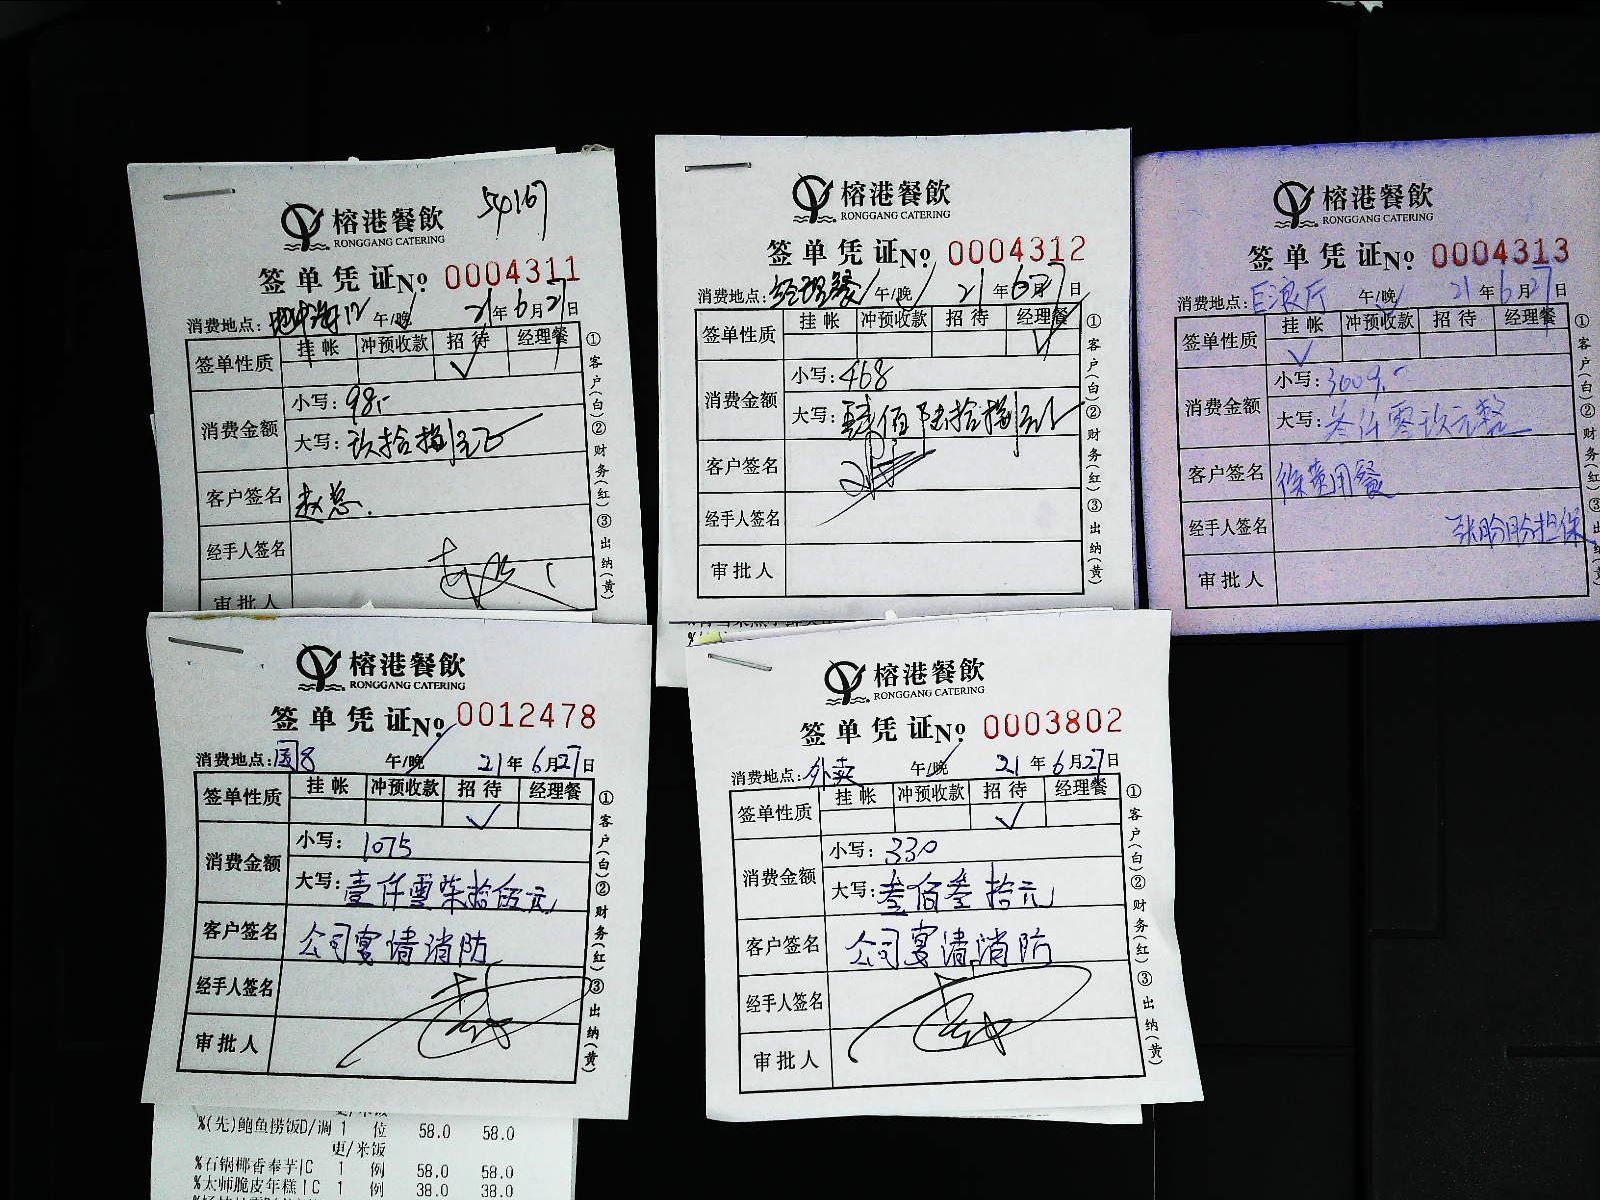 榕港餐飲
RONGGANG CATERING
54167
签单凭证No. 0004311
消费地点: 地中海12 午/晚 21年6月27日
签单性质 挂帐 冲预收款 招待 经理餐
✓
消费金额 小写: 98.-
大写: 玖拾捌元正
客户签名 赵总.
经手人签名
审批人
①客户(白)②财务(红)③出纳(黄)
榕港餐飲
RONGGANG CATERING
签单凭证No. 0004312
消费地点: 经理餐 午/晚 21年6月27日
签单性质 挂帐 冲预收款 招待 经理餐
✓
消费金额 小写: 468
大写: 肆佰陆拾捌元
客户签名
经手人签名
审批人
①客户(白)②财务(红)③出纳(黄)
榕港餐飲
RONGGANG CATERING
签单凭证No. 0004313
消费地点: 巨浪厅 午/晚 21年6月27日
签单性质 挂帐 冲预收款 招待 经理餐
✓
消费金额 小写: 3009.-
大写: 叁仟零玖元整
客户签名 徐荣用餐
经手人签名 张盼盼担保
审批人
①客户(白)②财务(红)③出纳(黄)
榕港餐飲
RONGGANG CATERING
签单凭证No. 0012478
消费地点: 国8 午/晚 21年6月27日
签单性质 挂帐 冲预收款 招待 经理餐
✓
消费金额 小写: 1075
大写: 壹仟零柒拾伍元
客户签名 公司宴请消防
经手人签名
审批人
①客户(白)②财务(红)③出纳(黄)
榕港餐飲
RONGGANG CATERING
签单凭证No. 0003802
消费地点: 外卖 午/晚 21年6月27日
签单性质 挂帐 冲预收款 招待 经理餐
✓
消费金额 小写: 330
大写: 叁佰叁拾元
客户签名 公司宴请消防
经手人签名
审批人
①客户(白)②财务(红)③出纳(黄)
%(先)鲍鱼捞饭D/调 1 位 58.0 58.0
更/米饭
%石锅椰香奉芋|C 1 例 58.0 58.0
%太师脆皮年糕|C 1 例 38.0 38.0